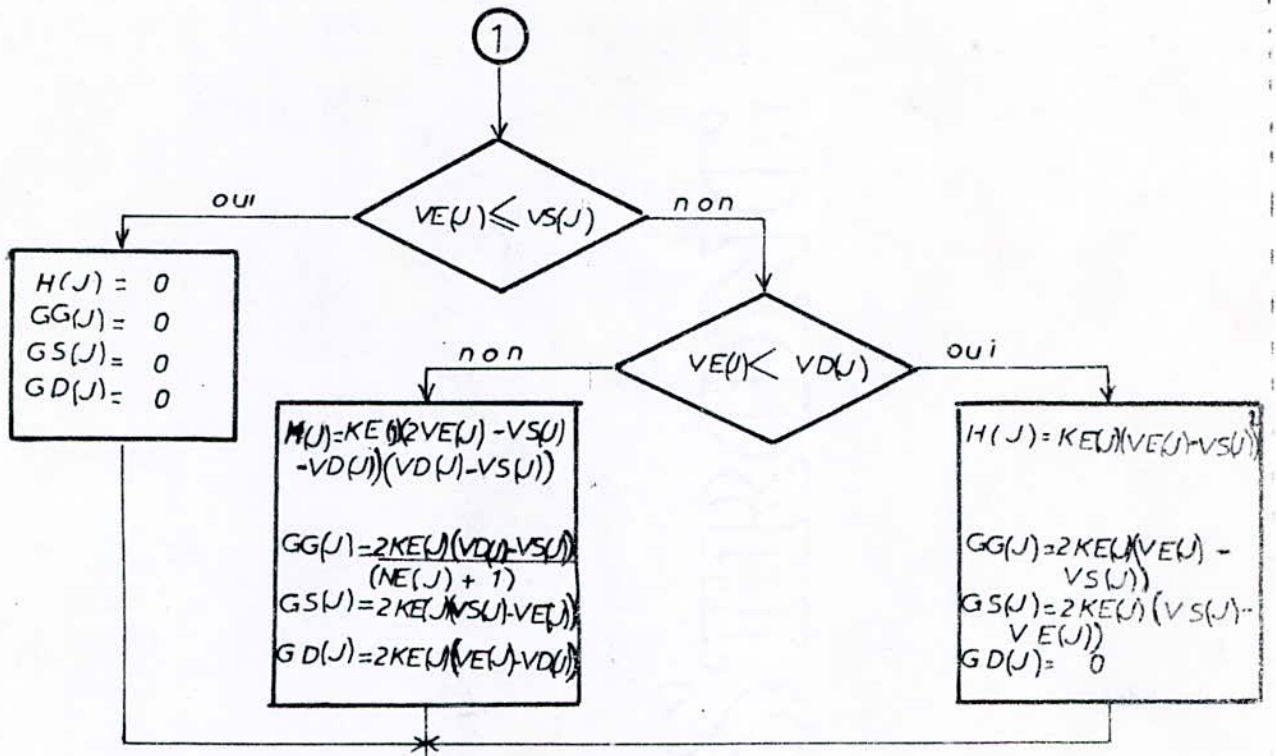 1
VE(J) ⩽ VS(J)
oui
non
H(J) = 0
GG(J) = 0
GS(J) = 0
GD(J) = 0
VE(J) < VD(J)
non
oui
H(J)=KE(J)(2VE(J)-VS(J)
-VD(J))(VD(J)-VS(J))
GG(J)=2KE(J)(VD(J)-VS(J))
(NE(J) + 1)
GS(J)=2KE(J)(VS(J)-VE(J))
GD(J)=2KE(J)(VE(J)-VD(J))
H(J)=KE(J)(VE(J)-VS(J))²
GG(J)=2KE(J)(VE(J) -
VS(J))
GS(J)=2KE(J)(VS(J)-
VE(J))
GD(J)= 0